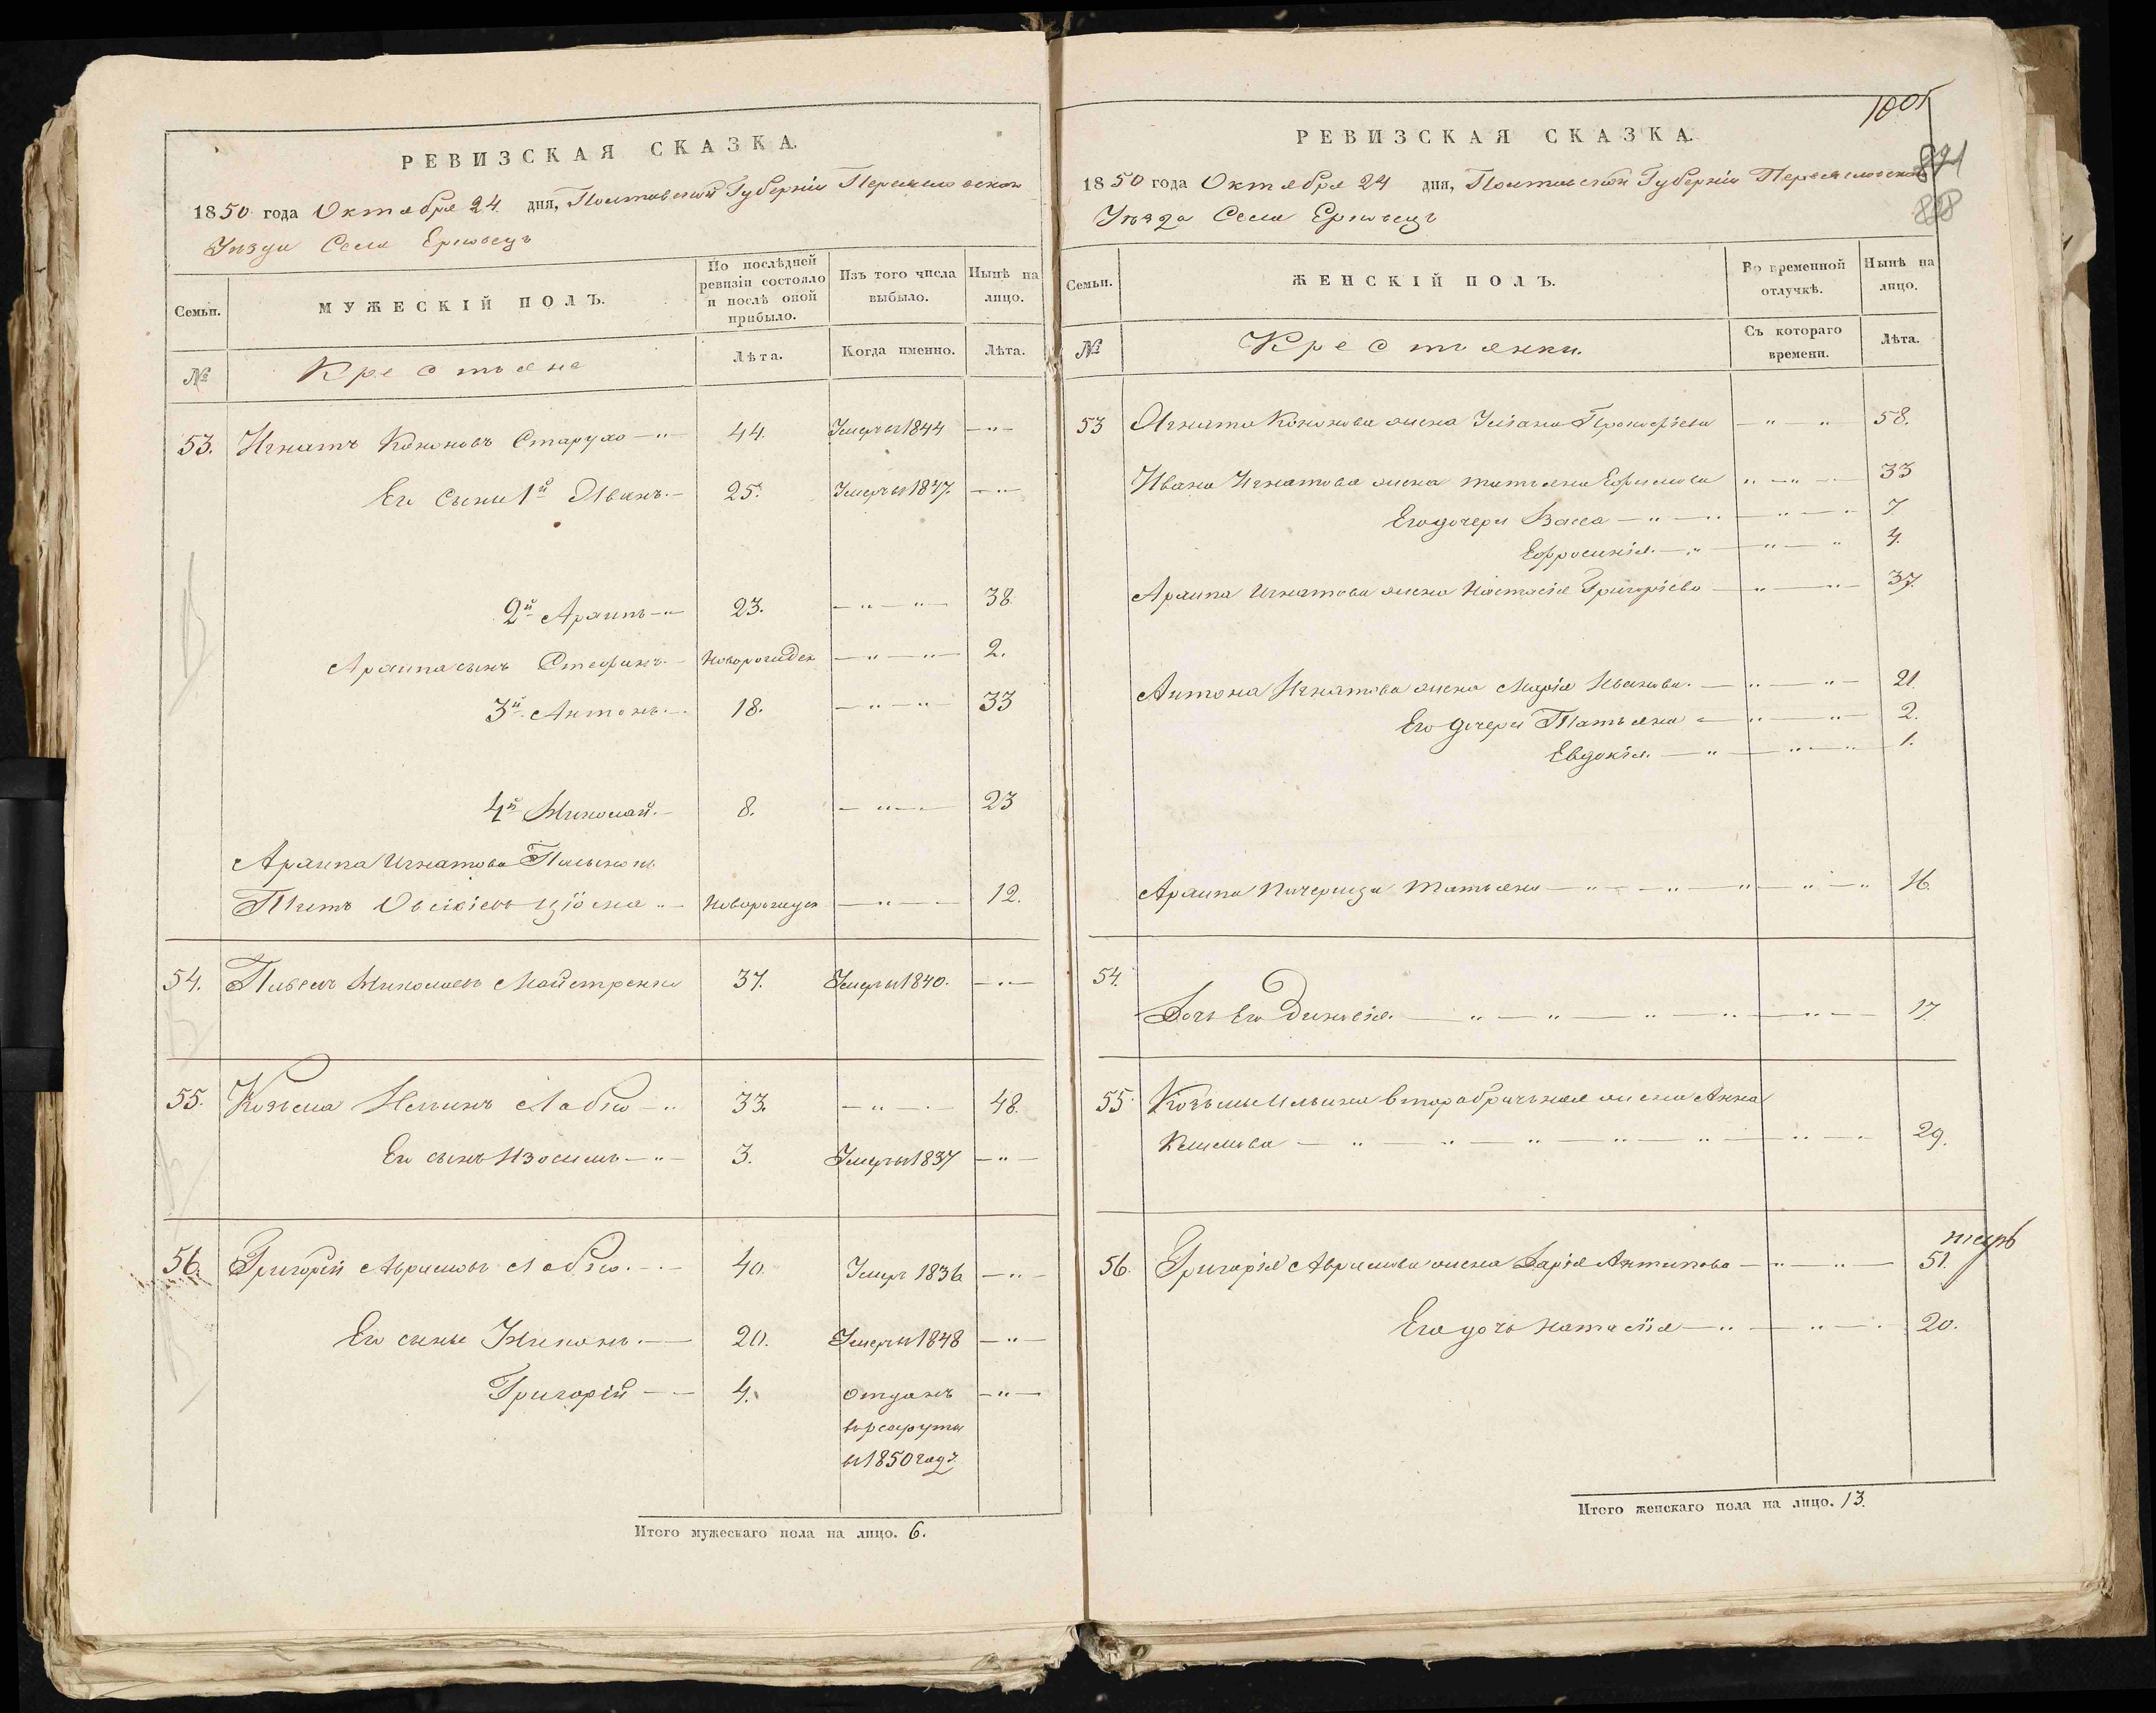 РЕВИЗСКАЯ СКАЗКА.
1850 года Октября 24 дня, Полтавской Губерніи Переяславскаго
Уѣзда Села Ерковецъ
Семьи. МУЖЕСКІЙ ПОЛЪ. По послѣдней ревизіи состояло и послѣ оной прибыло. Изъ того числа выбыло. Нынѣ на лицо.
№ Крестьяне Лѣта. Когда именно. Лѣта.
53. Игнатъ Кононовъ Старухо 44. Умеръ въ 1844
Его Сыны 1й Иванъ 25. Умеръ въ 1847.
2й Архипъ 23. 38
Архипа сынъ Стефанъ Новорожден 2.
3й Антонъ 18. 33
4й Николай 8. 23
Архипа Игнатова
Титъ Новорожден 12.
54. Николаевъ Майстренко 37. Умеръ въ 1840.
55. Козьма Ильинъ Лабзо 33. 48.
Его сынъ Изосимъ 3. Умеръ въ 1837
56. Григорій Аврамовъ Лабзо 40. Умеръ 1836
Его сыны Никонъ 20. Умеръ въ 1848
Григорій 4. отданъ
въ рекруты
въ 1850 году
Итого мужескаго пола на лицо. 6.
РЕВИЗСКАЯ СКАЗКА.
1850 года Октября 24 дня, Полтавской Губерніи Переяславскаго
Уѣзда Села Ерковецъ
Семьи. ЖЕНСКІЙ ПОЛЪ. Во временной отлучкѣ. Нынѣ на лицо.
№ Крестьянки. Съ котораго времени. Лѣта.
53 Игната Кононова жена Уліана Прокофіева 58.
Ивана Игнатова жена Татьяна Ефимова 33
Его дочери Васса 7
Ефросинія 4.
Архипа Игнатова жена Настасія Григоріева 37.
Антона Игнатова жена Марія Иванова 21
Его дочери Татьяна 2.
Евдокія 1.
Архипа Падчерица Татьяна 16.
54.
Дочь Его 17
55. Козьмы Ильина второбрачная жена Анна
Климова 29.
56. Григорія Аврамова жена Дарія Антипова 51.
Его дочь Настасія 20.
Итого женскаго пола на лицо. 13.